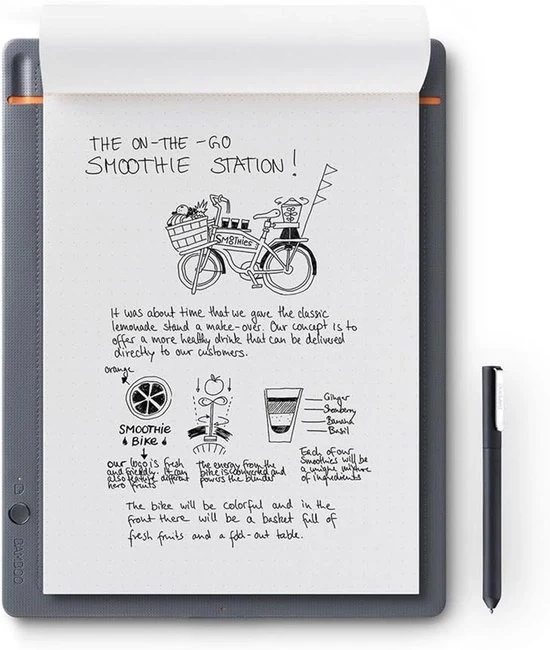 THE ON-THE-GO
SMOOTHIE STATION!
SMOOTHIES
It was about time that we gave the classic
lemonade stand a make-over. Our concept is to
offer a more healthy drink that can be delivered
directly to our customers.
orange
SMOOTHIE
BIKE
Ginger
Strawberry
Banana
Basil
our logo is fresh
and friendly. It can
also feature different
hero fruits
the energy from the
bike is converted and
powers the blender
Each of our
Smoothies will be
a unique mixture
of ingredients
The bike will be colorful and in the
front there will be a basket full of
fresh fruits and a fold-out table.
BAMBOO